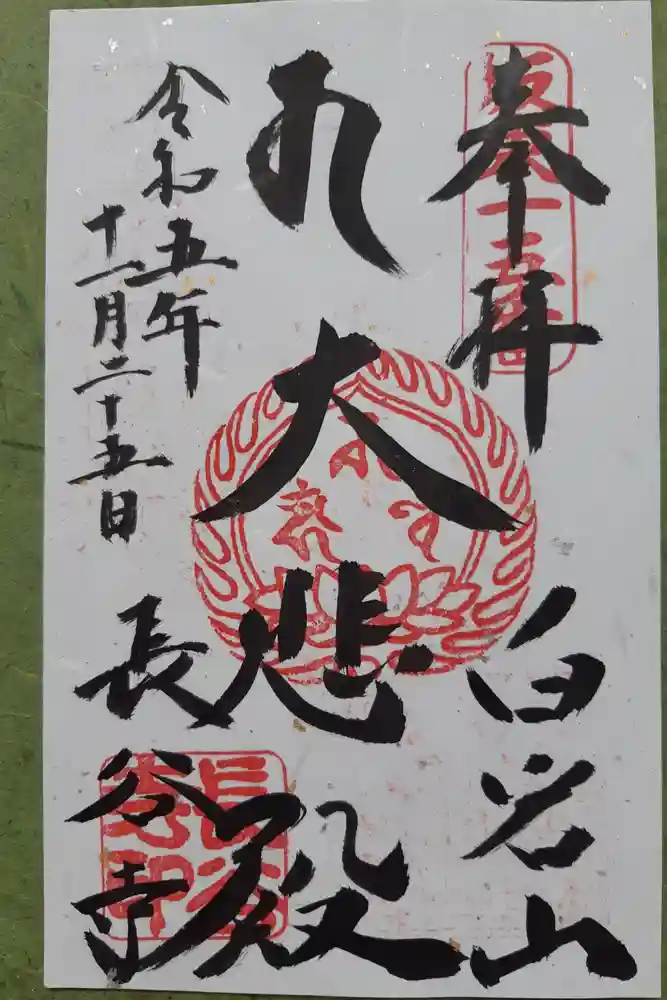 奉拝
白岩山
坂東十五番
大悲殿
令和五年
十一月二十五日
長谷寺